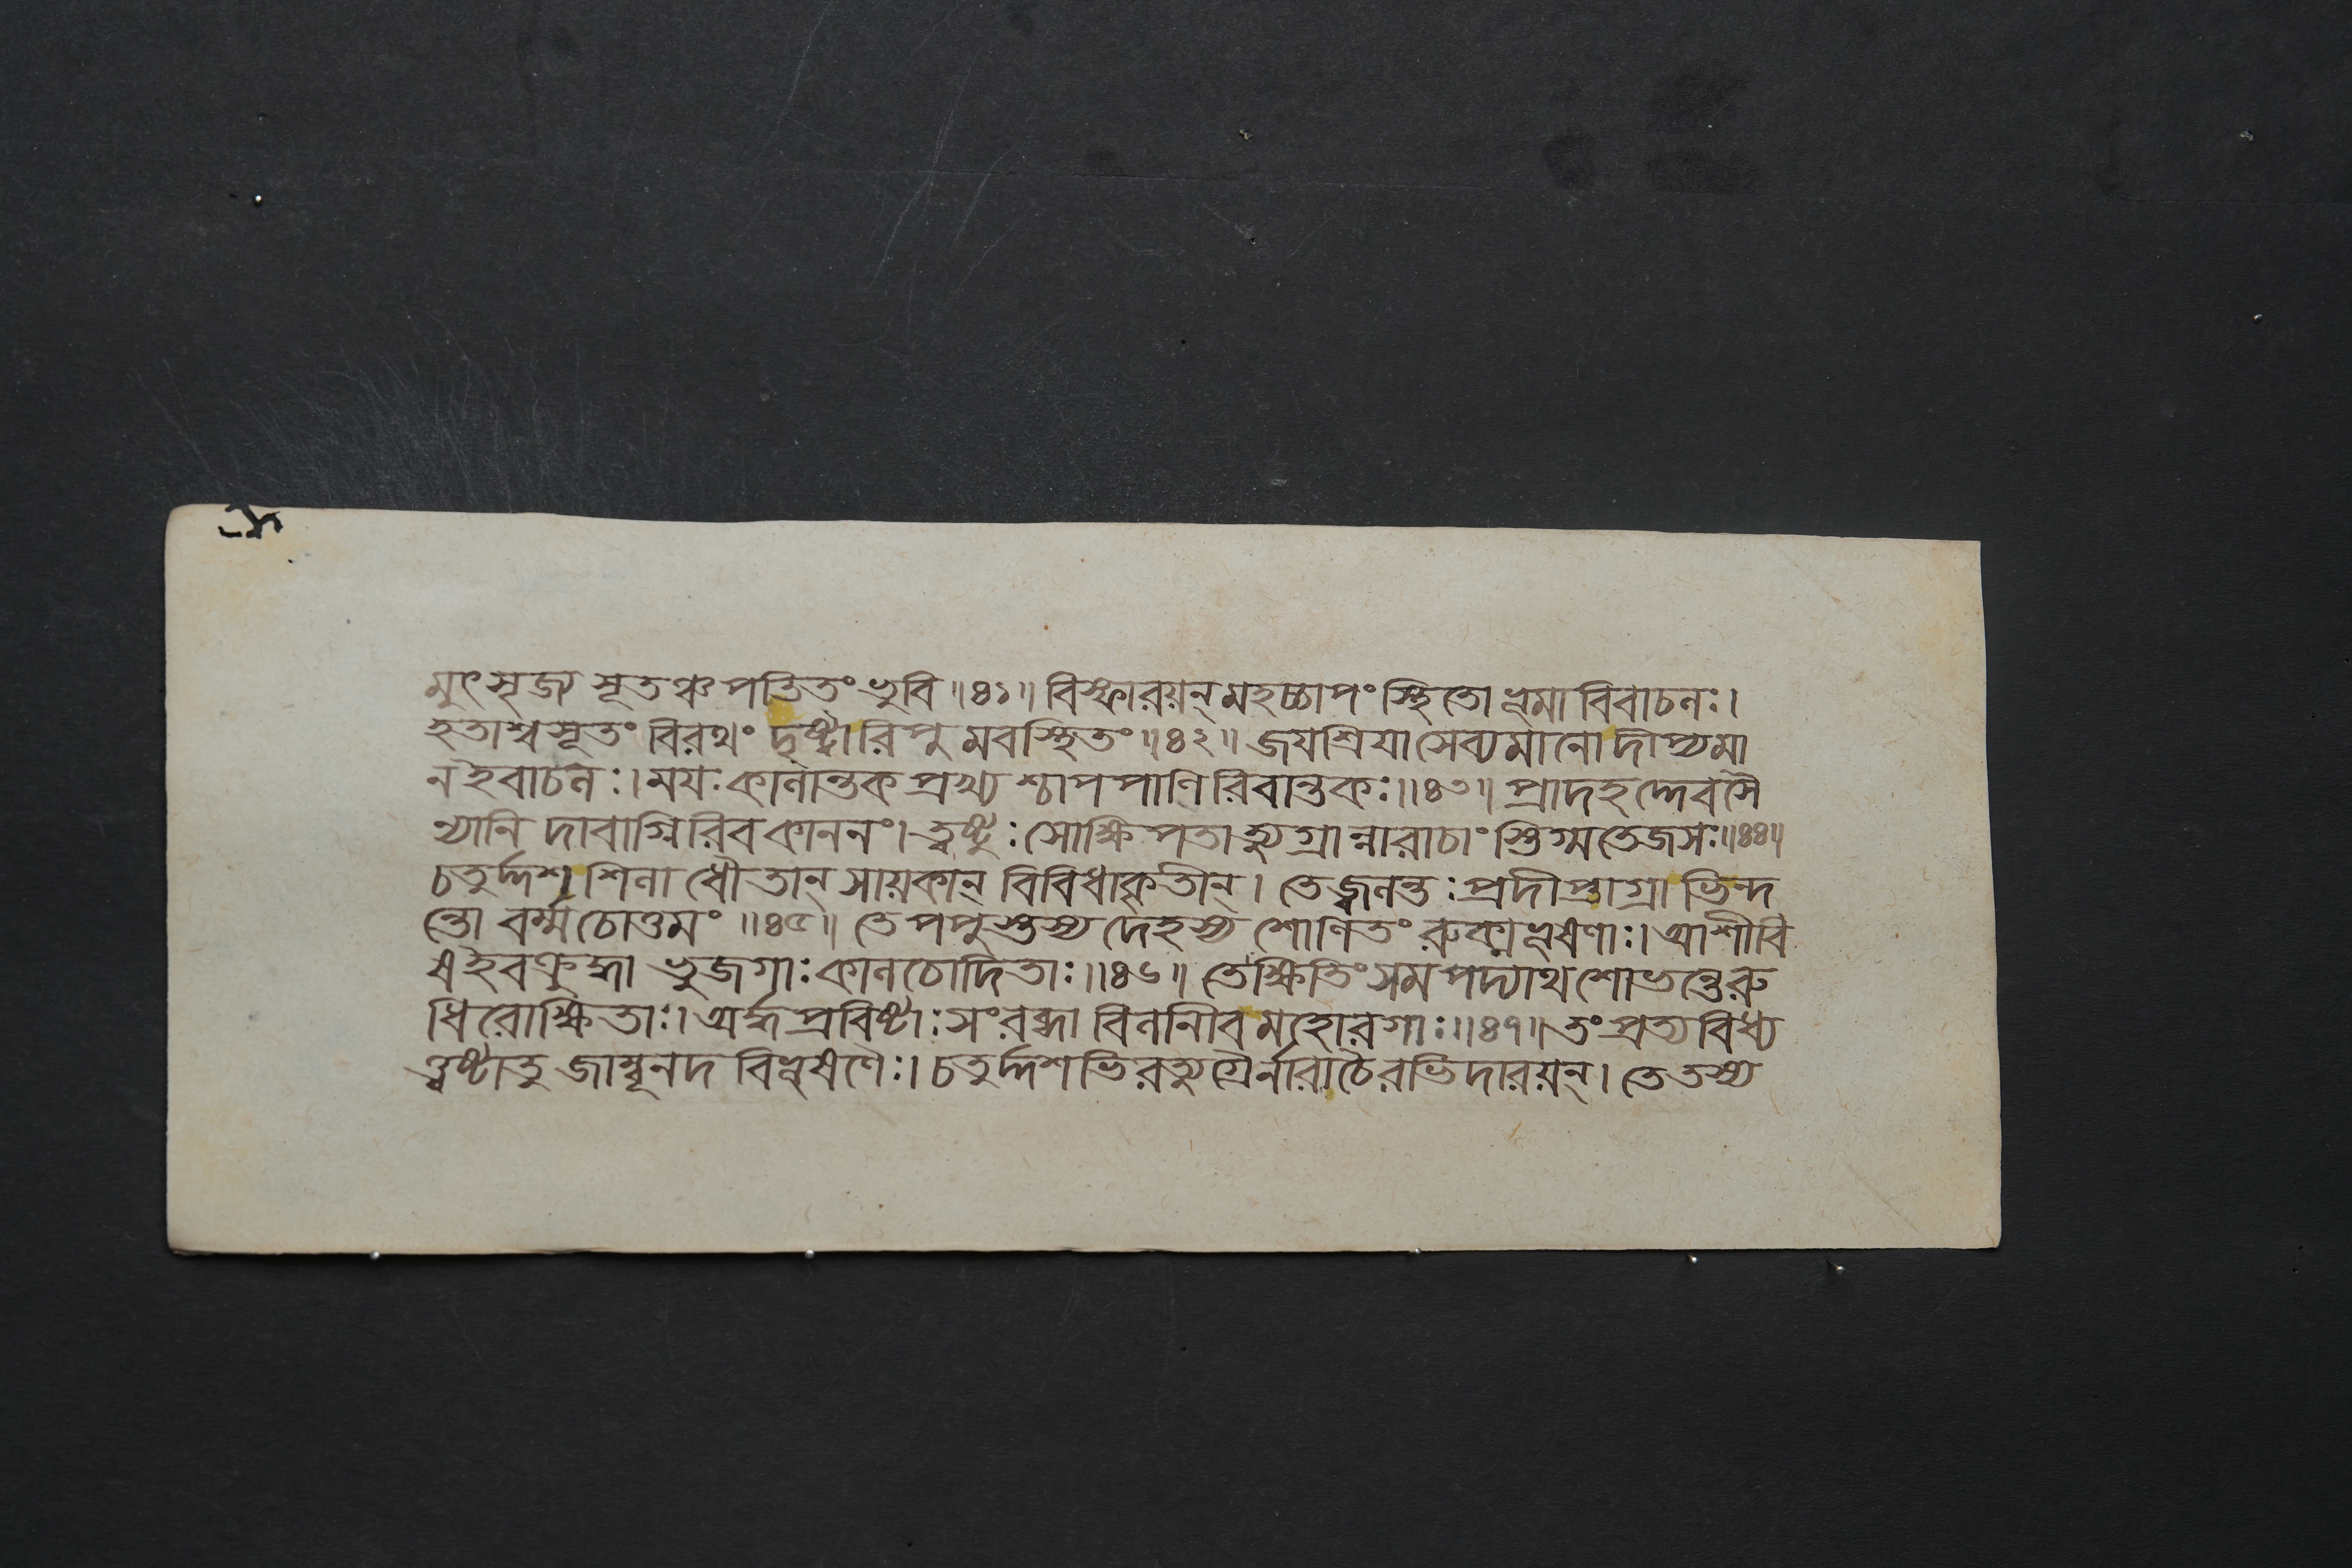 মুৎসৃজ্য সূতঞ্চ পতিতং ভুবি॥৪১॥ বিস্ফারয়ন্ মহচ্চাপং স্থিতো ভূমাবিবাচলঃ।
হতাশ্বসূতং বিরথং দৃষ্ট্বা রিপুমবস্থিতং॥৪২॥ জয়শ্রিয়া সেব্যমানো দীপ্যমা
ন ইবাচলঃ। ময়ঃ কালান্তকপ্রখ্যশ্চাপপাণিরিবান্তকঃ॥৪৩॥ প্রাদহদ্দেবসৈ
ন্যানি দাবাগ্নিরিব কাননং। ত্বষ্টুঃ সোক্ষিপতাত্যুগ্রান্নারাচাংস্তিগ্মতেজসঃ॥৪৪॥
চতুর্দ্দশ শিলাধৌতান্ সায়কান্ বিবিধাকৃতীন্। তে জ্বলন্তঃ প্রদীপ্তাগ্রা ভিন্দ
ন্তো বর্ম্ম চোত্তমং॥৪৫॥ তে পপুস্তস্য দেহস্য শোণিতং রুক্মভূষণাঃ। আশীবি
ষ ইব ক্রুদ্ধা ভুজগাঃ কালচোদিতাঃ॥৪৬॥ তে ক্ষিতিং সমপদ্যাথ শোভন্তে রু
ধিরোক্ষিতাঃ। অর্দ্ধপ্রবিষ্টাঃ সংরব্ধা বিলনীব মহোরগাঃ॥৪৭॥ তং প্রত্যবিধ্য
ত্ত্বষ্টা তু জাম্বূনদবিভূষণৈঃ। চতুর্দ্দশভিরত্যুগ্রৈর্নারাচৈরভিদারয়ন্। তে তস্য